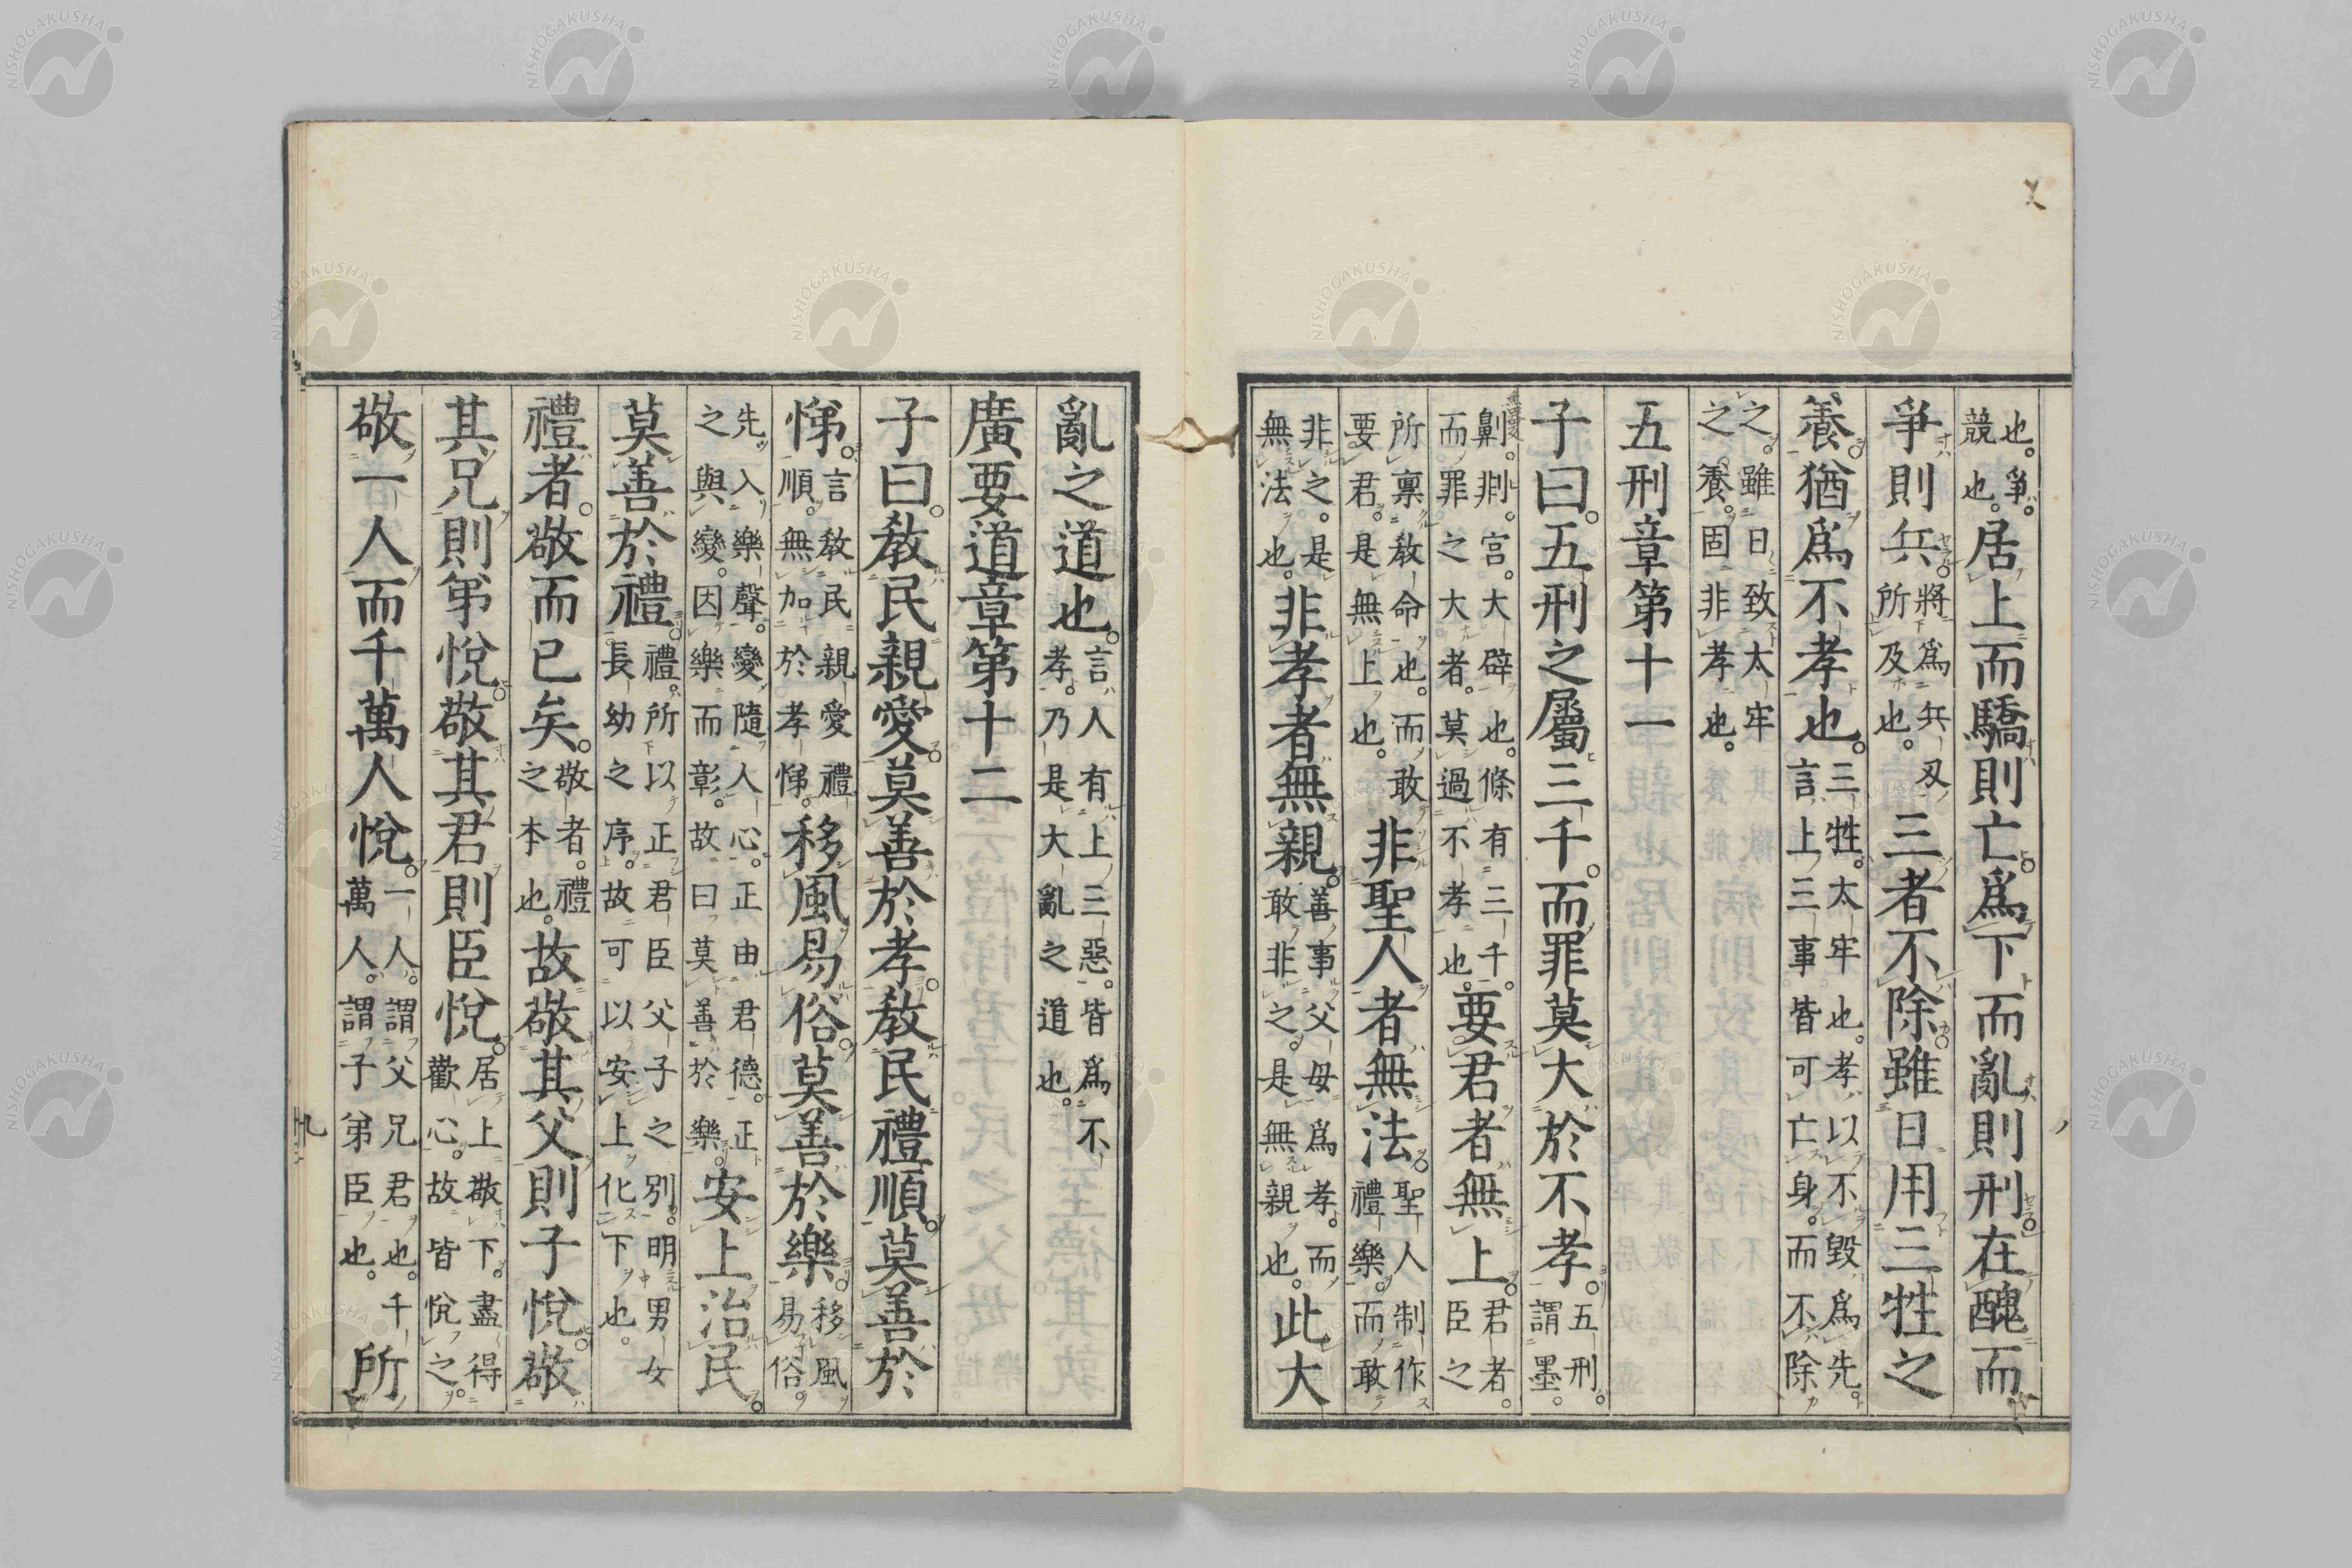 也。爭。競也。居上而驕則亡。爲下而亂則刑。在醜而
爭則兵。將爲兵刄所及也。三者不除。雖日用三牲之
養。猶爲不孝也。三牲。太牢也。孝以不毀爲先。言上三事皆可亡身。而不除
之。雖日致太牢之養。固非孝也。
五刑章第十一
子曰。五刑之屬三千。而罪莫大於不孝。五刑。謂墨。
劓。剕。宮。大辟也。條有三千。而罪之大者。莫過不孝也。要君者無上。君者。臣之
所稟教命也。而敢要君。是無上也。非聖人者無法。聖人制作禮樂。而敢
非之。是無法也。非孝者無親。善事父母爲孝。而敢非之。是無親也。此大
亂之道也。言人有上三惡。皆爲不孝。乃是大亂之道也。
廣要道章第十二
子曰。教民親愛。莫善於孝。教民禮順。莫善於
悌。言教民親愛禮順。無加於孝悌。移風易俗。莫善於樂。移風易俗。
先入樂聲。變隨人心。正由君德。正之與變。因樂而彰。故曰莫善於樂。安上治民。
莫善於禮。禮。所以正君臣父子之別。明男女長幼之序。故可以安上化下也。
禮者。敬而已矣。敬者。禮之本也。故敬其父則子悅。敬
其兄則弟悅。敬其君則臣悅。居上敬下。盡得歡心。故皆悅之。
敬一人而千萬人悅。一人。謂父兄君也。千萬人。謂子弟臣也。所
九
NISHOGAKUSHA